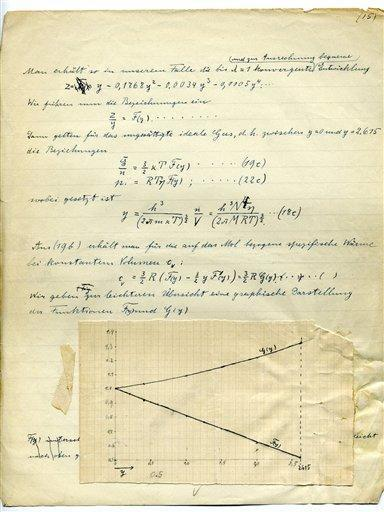 (15)
und zur Ausrechnung bequeme
Man erhält so in unserem Falle die bis λ = 1 konvergente Entwicklung
z = y - 0,1768 y² - 0,0034 y³ - 0,0005 y⁴ ....
Wir führen nun die Bezeichnungen ein
z/y = F(y) . . . . . . . .
Dann gelten für das ungesättigte ideale Gas, d.h. zwischen y = 0 und y = 2,615
die Beziehungen
Ē/n = 3/2 κT F(y) . . . . . (19c)
p = RT/V F(y) ; . . . . . (22c)
wobei gesetzt ist
y = h³/(2πmκT)^3/2 n/V = h³N⁴/(2πMRT)^3/2 V ... (18c)
Aus (19b) erhält man für die auf das Mol bezogene spezifische Wärme
bei konstantem Volumen cv:
cv = 3/2 R (F(y) - 3/2 y F'(y)) = 3/2 R G(y) . . . . ( )
Wir geben zur leichteren Übersicht eine graphische Darstellung
der Funktionen F(y) und G(y)
G(y)
F(y)
y
0.5
2.615